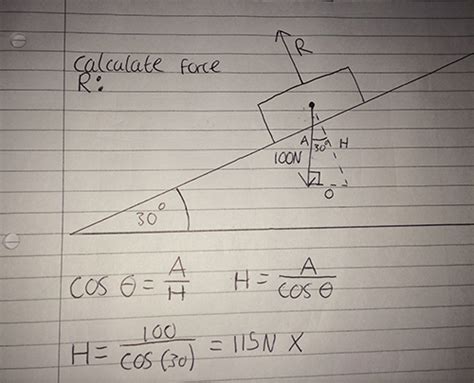 Calculate force
R:
R
A 30° H
100N
O
30°
cos θ = A/H    H = A/cos θ
H = 100/cos(30) = 115N X